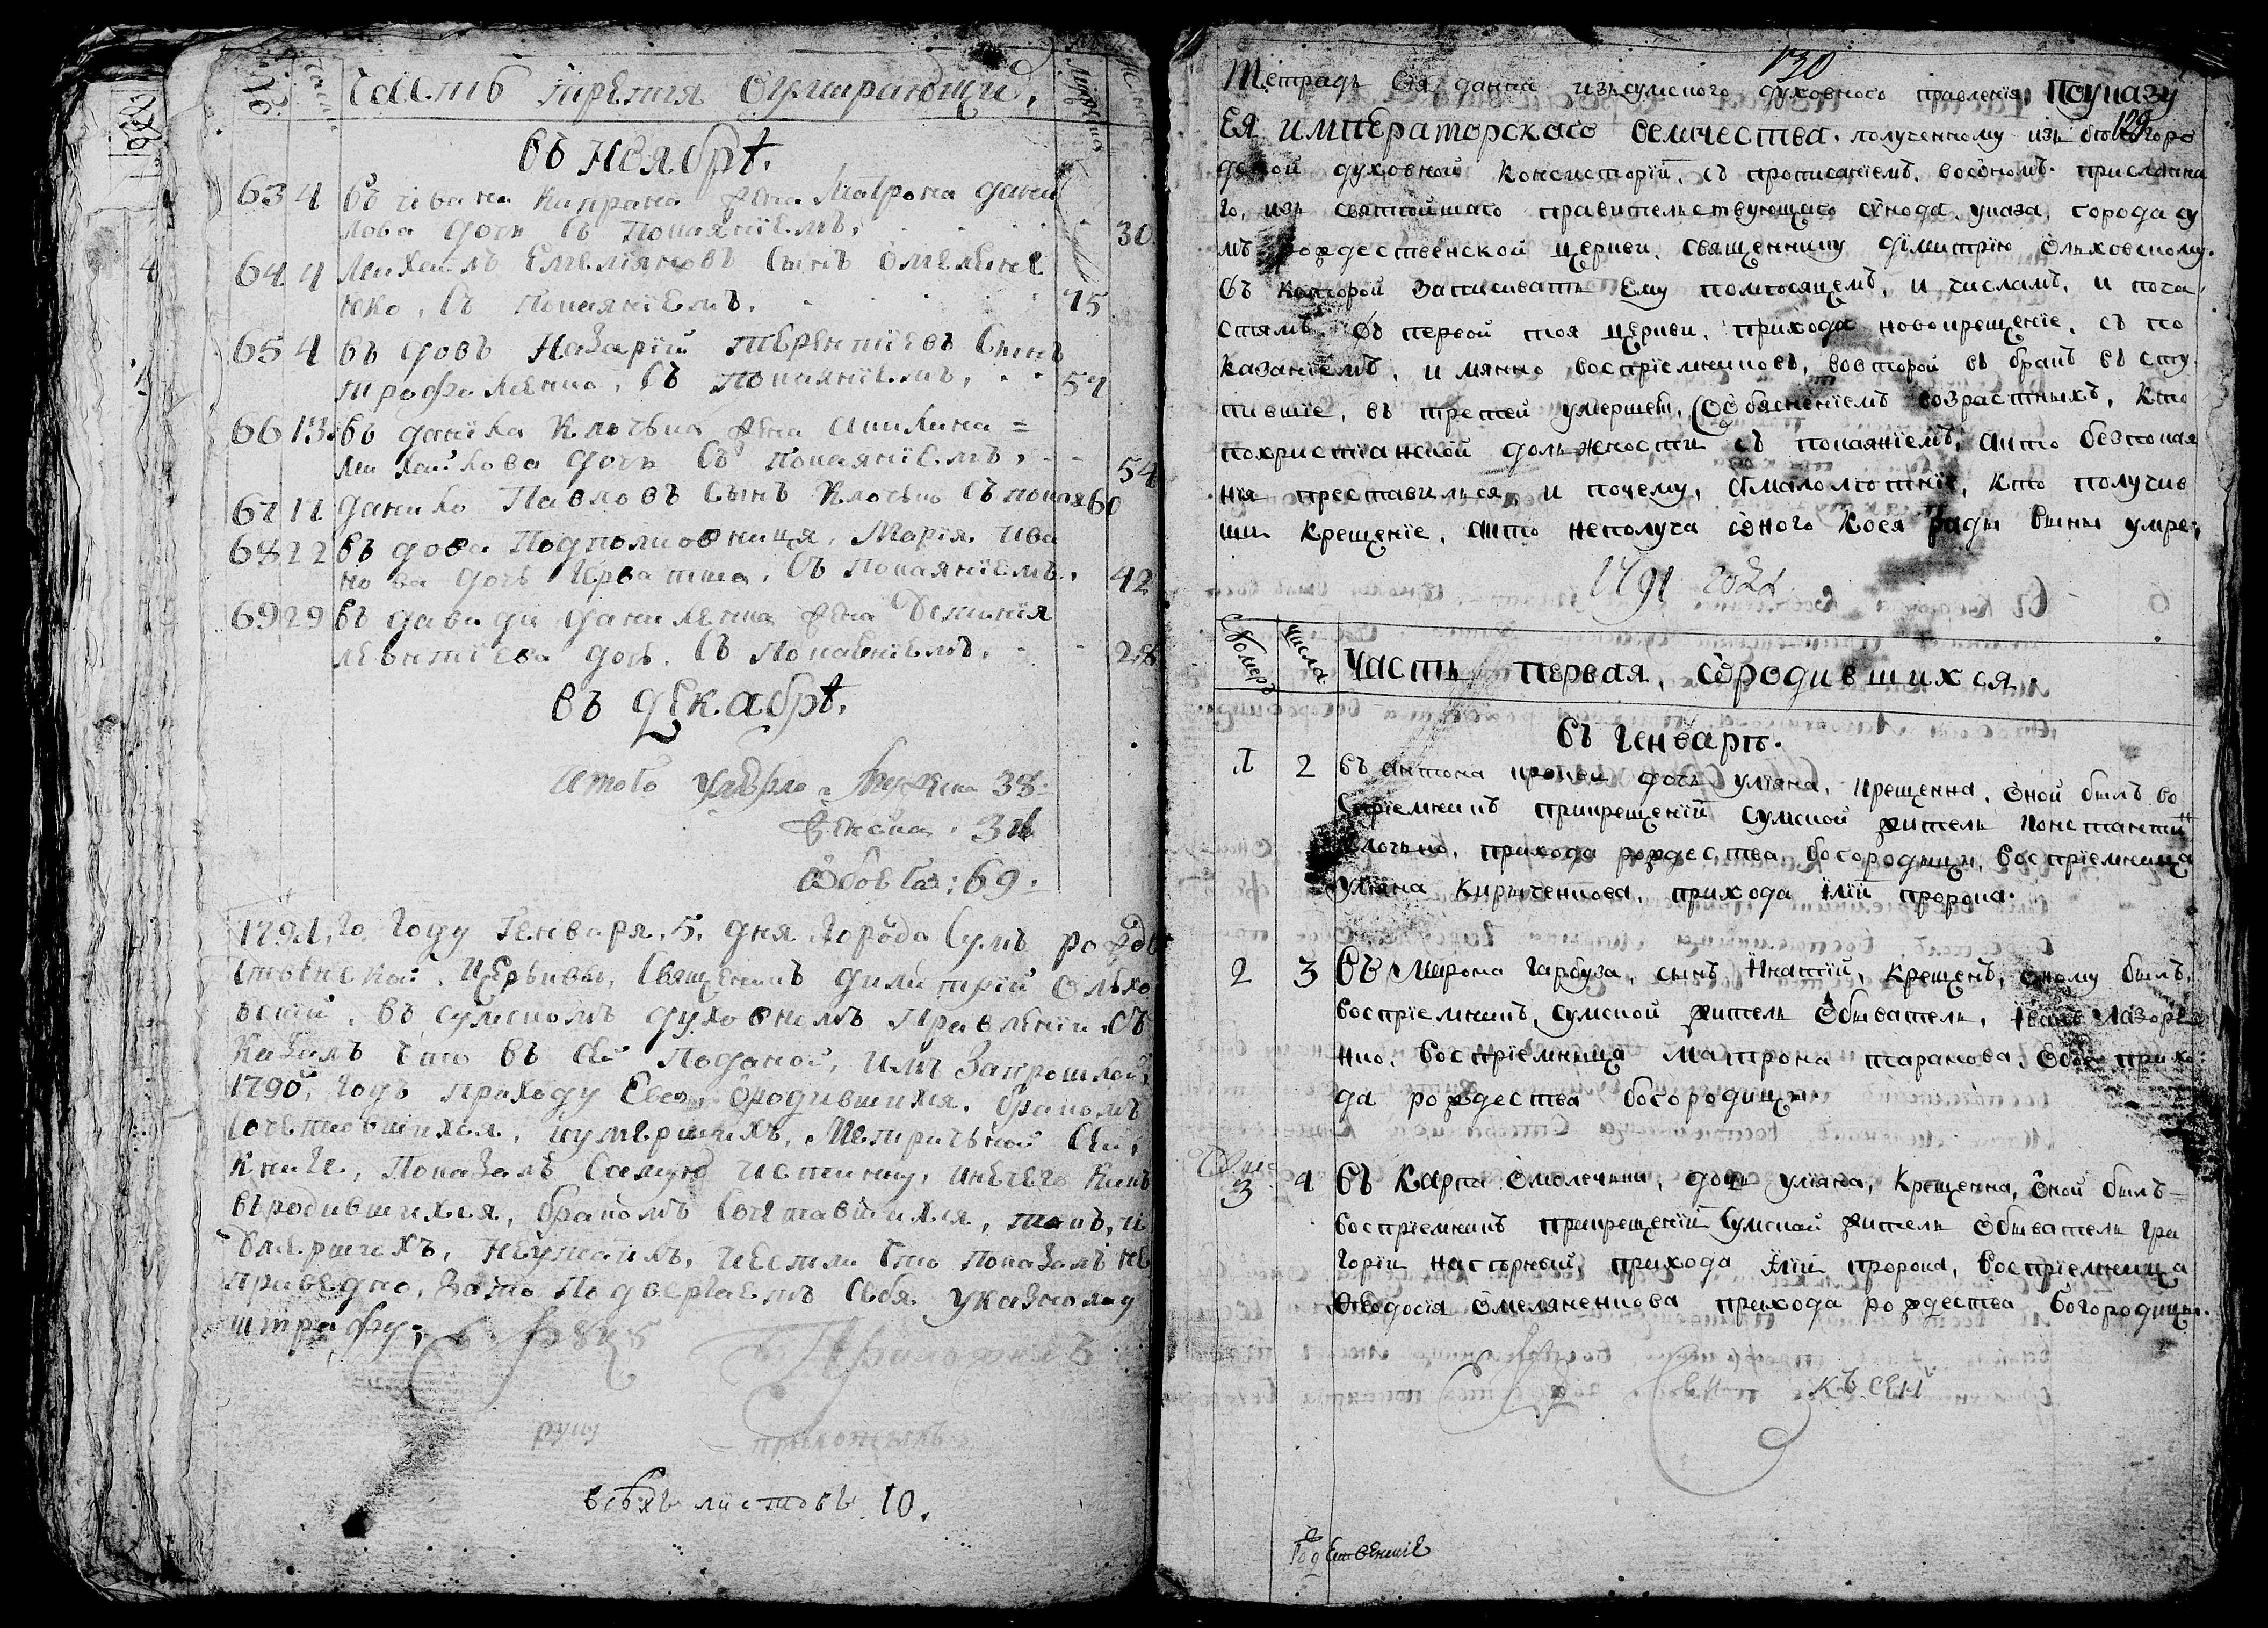 Часть третія Оумирающи,
Въ Ноябрѣ.
63 4 Въ ивана Капрана жена Матрона дани
лова дочь Съ Покаяніемъ, 30
64 4 Михаилъ Емеліяновъ Сынъ Омеляне
нко, Съ Покаяніемъ. 75
65 4 въ довъ Назарій терентіевъ Сынъ
трофименко, Съ Покаяніемъ,
66 13 въ данила Клочька жена Акилина =
михайлова дочь Съ Покаяніемъ, 54
67 17 данило Павловъ Сынъ Клочько Съ покая 60
68 22 въ дова Подполковница, Марія ива
нова дочь Съ Покаяніемъ, 42
69 29 въ давида даниленка жена
леонтіева дочь. Съ Покаяніемъ, 28
въ декабрѣ.
Итого умерло Мужеска 38:
Женска. 31
Обоего: 69:
1791, го Году Генваря, 5, дня города Сумъ рожде
ственской, Церькви, Священикъ димитрій Олхо
вскій, въ сумскомъ духовномъ Правленіи, С
Казалъ что въ сей Поданой, имъ Запрошлой,
1790, годъ приходу Его, Ородившихся, бракомъ
Сочетавшихся, иумершихъ, Метричной Сей,
Книги, Показалъ Самую истинну, инечего Какъ
въродившихся, бракомъ Сочетавшихся, такъ, и
умершихъ, Неутаилъ, иестли Что Показалъ не
праведно, Зато Подвергаетъ Себя указному
штрафу;
руку приложилъ
всѣхъ листовъ 10.
130
Тетрадь Сія данна изъсумского духовного правленія, Поуказу
129
ЕЯ императорскаго Величества, полученному изъ бѣлогоро
дской духовной Консисторіи, съ прописаніемъ, воономъ присланна
го, изъ святѣйшаго правительствующаго сѵнода, указа, города су
мъ рождественской церкви, священнику димитрію Ольховскому.
Въ которой Записивать Ему помѣсяцемъ, и числамъ, и поча
стямъ, въ первой тоя церкви, прихода новокрещеніе, съ по
казаніемъ, и мянно воспріемниковъ, вовторой въ бракъ въсту
пившіе, въ третей умершеи, Собясненіемъ возрастныхъ, Кто
похристіанской должности съ покаяніемъ, акто безпокая
нія преставился, и почему, амалолѣтніе, кто получив
ши Крещеніе, акто неполуча оного Коея ради вины умре;
1791 года
Номеръ Числа Часть первая, ородившихся.
Въ Генварѣ.
1 2 Въ антона дочь уліяна, крещенна, Оной былъ во
спріемникъ прикрещеніи Сумской житель Константи
Клочько, прихода рождества богородици, Воспріемница
Уліяна Кириченкова, прихода іліи пророка.
2 3 Въ Мирона Гарбуза, сынъ Игнатій, крещенъ, оному былъ,
воспріемникъ, Сумской житель Обыватель, Іванъ Лазоре
нко. Воспріемница Матрона таранова, Обое прихо
да рождества богородици.
3 4 Въ Карпа Омолечьки, дочь уліяна, Крещенна, оной былъ =
воспріемникъ прикрещеніи Сумской житель Обыватель гри
горій нагорный, прихода іліи пророка, Воспріемница
Ѳеодосія Омеляненкова прихода рождества богородици.
Къ сей